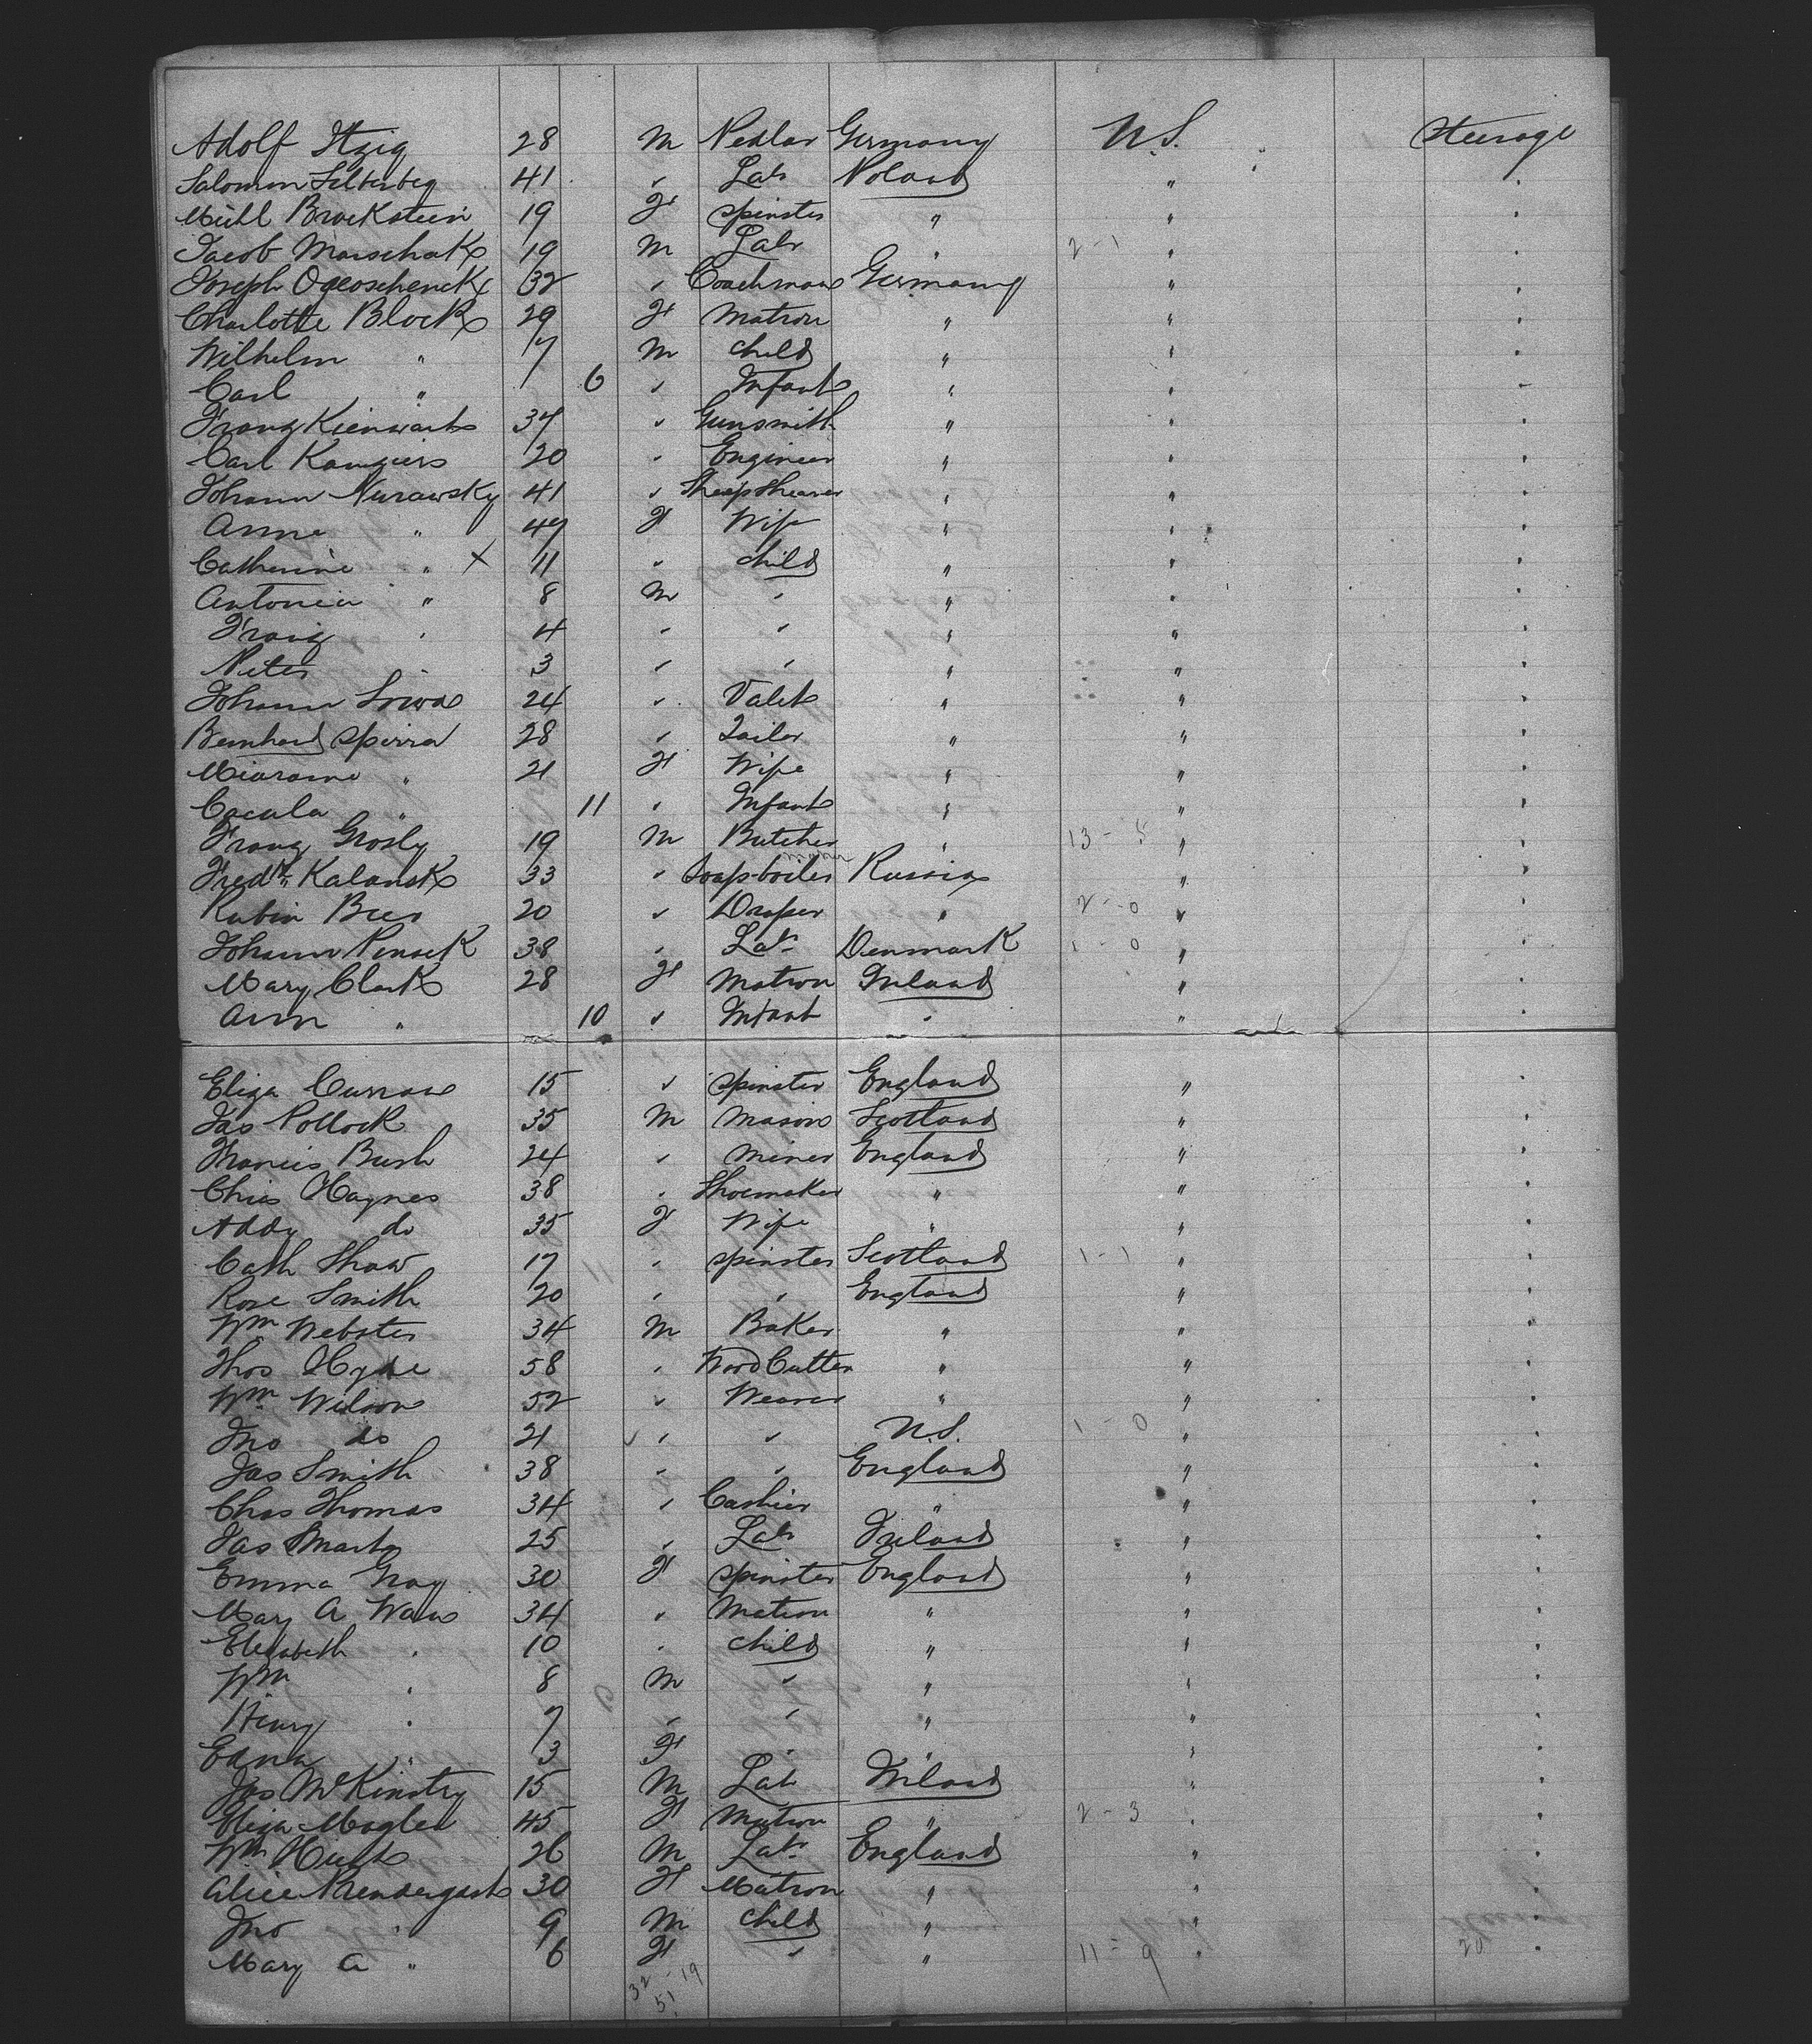 Adolf Itzig 28 M Pedlar Germany U.S. Steerage
Salomon Silberberg 41 " Labr Poland " "
Michl Brockstein 19 F spinster " " "
Jacob Marschak 19 M Labr " 2-1 " "
Joseph 32 " Coachman Germany " "
Charlotte Block 29 F Matron " " "
Wilhelm " 7 M child " " "
Carl " 6 " Infant " " "
Franz Kienwart 37 " Gunsmith " " "
Carl 20 " Engineer " " "
Johann Nurawsky 41 " Sheep Shearer " " "
Anna " 47 F Wife " " "
Catherine " X 11 " child " " "
Antonia " 8 M " " " "
Franz " 4 " " " " "
Peter 3 " " " " "
Johann 24 " Valet " " "
Bernhard Spirra 28 " Tailor " " "
" 21 F Wife " " "
Cacula " 11 " Infant " " "
Franz Grosly 19 M Butcher " 13-5 " "
Fredk Kalansk 33 " Soap-boiler Russia " "
Rubin 20 " Draper " 2-0 " "
Johann 38 " Labr Denmark 1-0 " "
Mary Clark 28 F Matron Ireland " "
Ann " 10 " Infant " " "
Eliza Curran 15 " spinster England " "
Jas Pollock 35 M Mason Scotland " "
Francis Bush 24 " Miner England " "
Chris Haynes 38 " Shoemaker " " "
Addy do 35 F Wife " " "
Cath Shaw 17 " spinster Scotland 1-1 " "
Rose Smith 20 " " England " "
Wm Webster 34 M Baker " " "
Thos Hyde 58 " Wood Cutter " " "
Wm Wilson 52 " Weaver " " "
Jno do 21 " " U.S. 1-0 " "
Jas Smith 38 " " England " "
Chas Thomas 34 " Cashier " " "
Jas 25 " Labr Ireland " "
Emma Gray 30 F spinster England " "
Mary A 34 " Matron " " "
Elizabeth " 10 " child " " "
Wm " 8 M " " " "
Henry " 7 " " " " "
Edna " 3 F " " " "
Jas McKinstry 15 M Labr Ireland " "
Eliza 45 F Matron " 2-3 " "
Wm 26 M Labr England " "
Alice Prendergast 30 F Matron " " "
Jno " 9 M child " " "
Mary A " 6 F " " 11-9 " 20 "
32-19
51